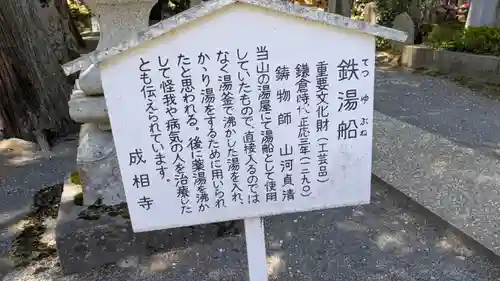 てつ ゆ ぶね
鉄湯船
重要文化財（工芸品）
鎌倉時代正応三年（一二九〇）
鋳物師 山河貞清
当山の湯屋にて湯船として使用
していたもので、直接入るのでは
なく湯釜で沸かした湯を入れ、
かゝり湯をするために用いられ
たと思われる。後に薬湯を沸か
して怪我や病気の人を治療した
とも伝えられています。
成相寺